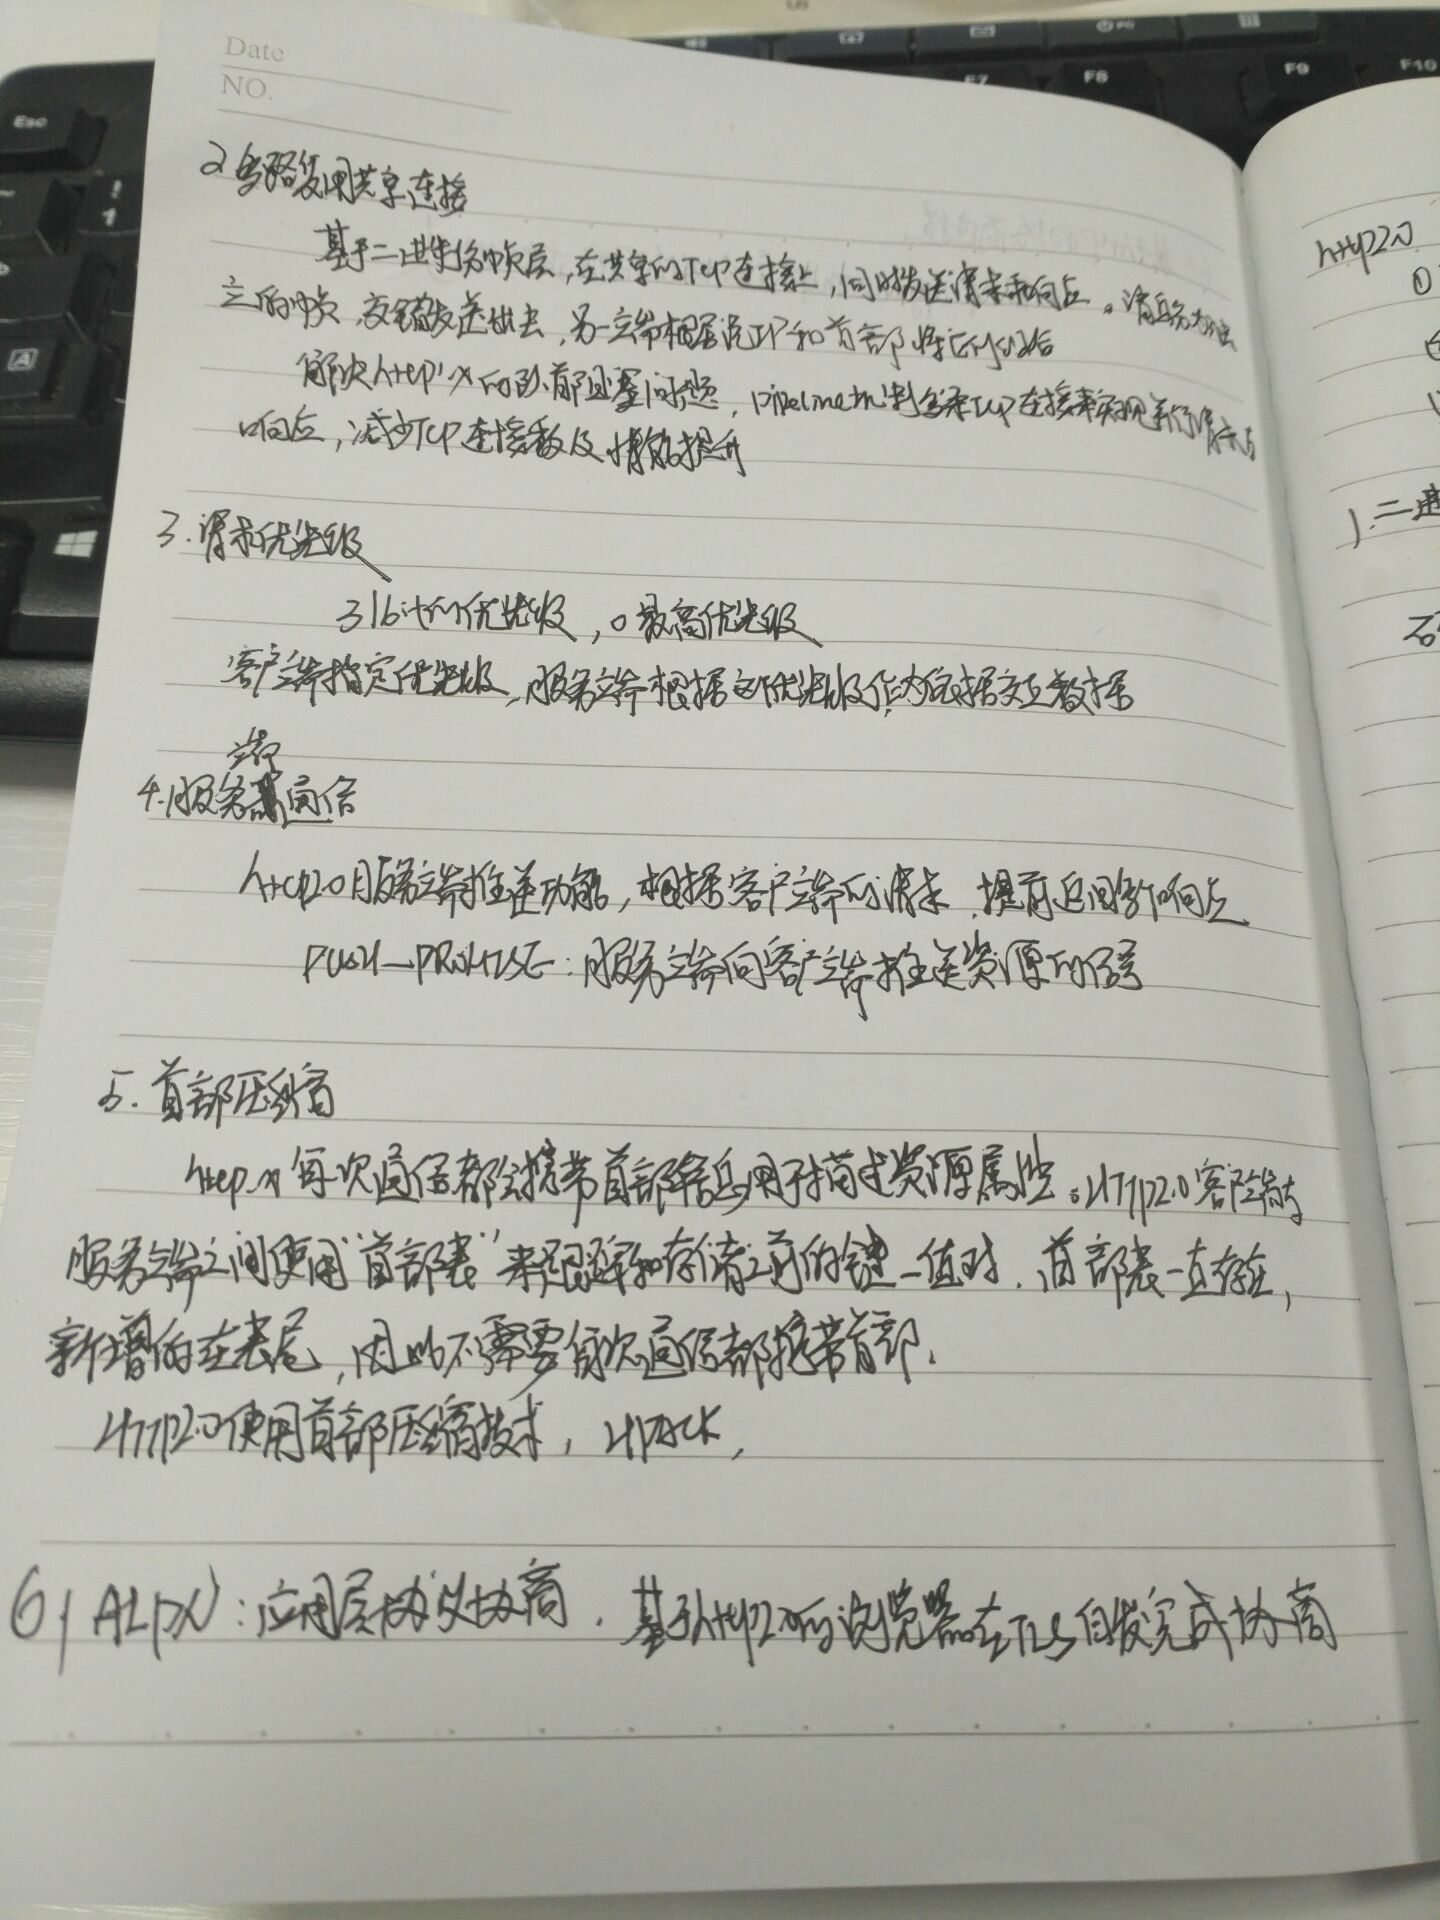 Date
NO.
2 多路复用共享连接
基于二进制分帧层,在共享的Tcp连接上,同时发送请求和响应。消息分为独
立的帧,交错发送出去,另一端根据流ID和首部将它们组合
解决http1.x的队首阻塞问题,pipeline机制 多条Tcp连接来实现并行请求与
响应,减少Tcp连接数及性能提升
3.请求优先级
31bit的优先级,0最高优先级
客户端指定优先级,服务端根据这个优先级作为依据交互数据
端
4.服务 通信
http2.0服务端推送功能,根据客户端的请求,提前返回多个响应
PUSH_PROMISE:服务端向客户端推送资源的信号
5.首部压缩
http.x每次通信都会携带首部信息用于描述资源属性。HTTP2.0客户端与
服务端之间使用"首部表"来跟踪和存储之前的键-值对.首部表一直存在,
新增的在表尾,因此不需要每次通信都携带首部.
HTTP2.0使用首部压缩技术,HPACK,
6, ALPN:应用层协议协商.基于http2.0的浏览器在TLS自发完成协商
Esc
!
1
A
F7
F8
F9
F10
http2.0
①
1.二进